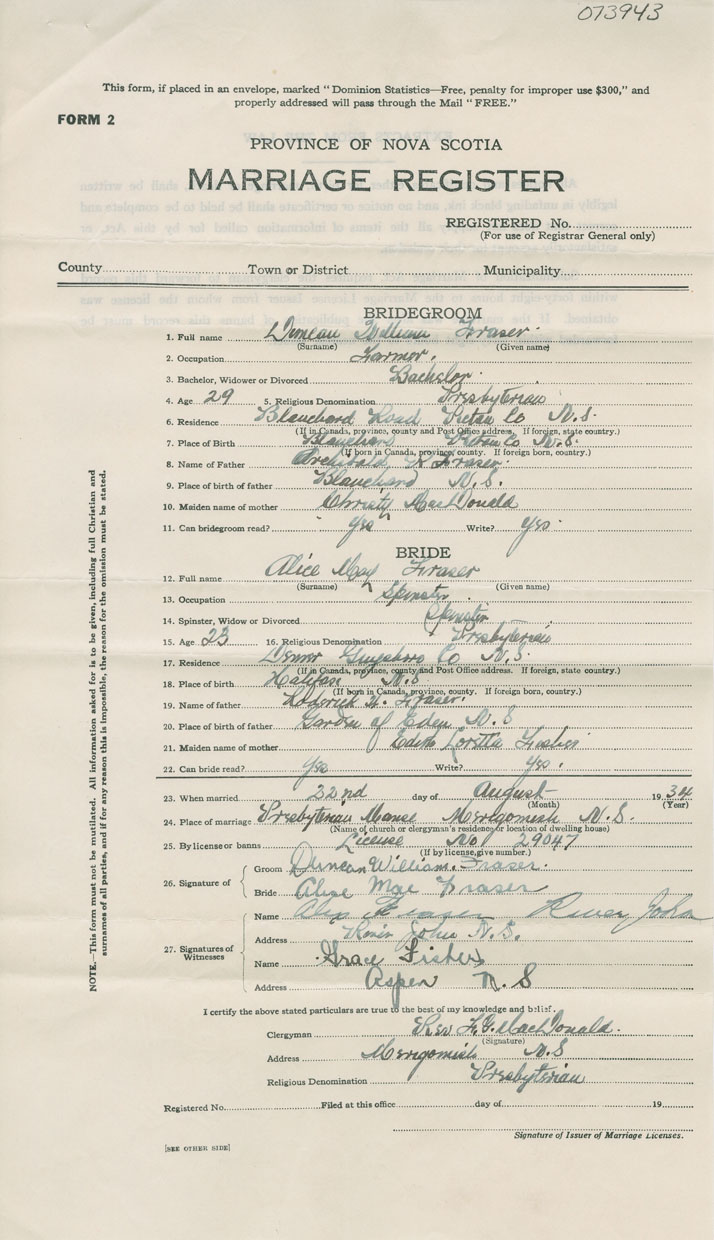 073943
This form, if placed in an envelope, marked "Dominion Statistics—Free, penalty for improper use $300," and
properly addressed will pass through the Mail "FREE."
FORM 2
PROVINCE OF NOVA SCOTIA
MARRIAGE REGISTER
REGISTERED No.
(For use of Registrar General only)
County Town or District Municipality
BRIDEGROOM
1. Full name Duncan William Fraser
(Surname) (Given name)
2. Occupation Farmer.
3. Bachelor, Widower or Divorced Bachelor
4. Age 29 5. Religious Denomination Presbyterian
6. Residence Blanchard Road Pictou Co N.S.
(If in Canada, province, county and Post Office address. If foreign, state country.)
7. Place of Birth Blanchard Pictou Co N.S.
(If born in Canada, province, county. If foreign born, country.)
8. Name of Father Archibald Fraser
9. Place of birth of father Blanchard N.S.
10. Maiden name of mother Christy MacDonald
11. Can bridegroom read? Yes Write? Yes
BRIDE
12. Full name Alice May Fraser
(Surname) (Given name)
13. Occupation Spinster
14. Spinster, Widow or Divorced Spinster
15. Age 23 16. Religious Denomination Presbyterian
17. Residence Guysboro Co N.S.
(If in Canada, province, county and Post Office address. If foreign, state country.)
18. Place of birth Halifax N.S
(If born in Canada, province, county. If foreign born, country.)
19. Name of father Roderick Fraser.
20. Place of birth of father Garden of Eden N.S
21. Maiden name of mother Edith Loretta Fisher
22. Can bride read? Yes Write? Yes.
23. When married 22nd day of August 1934
(Month) (Year)
24. Place of marriage Presbyterian Manse Merigomish N.S.
(Name of church or clergyman's residence or location of dwelling house)
25. By license or banns License No 29047
(If by license, give number.)
Groom Duncan William. Fraser.
26. Signature of
Bride Alice Mae Fraser
Name Alex Fraser River John
Address River John N.S.
27. Signatures of
Witnesses
Name Grace Fisher
Address Aspen N.S
I certify the above stated particulars are true to the best of my knowledge and belief.
Clergyman Rev MacDonald.
(Signature)
Address Merigomish N.S
Religious Denomination Presbyterian
Registered No. Filed at this office day of 19
Signature of Issuer of Marriage Licenses.
[SEE OTHER SIDE]
NOTE.—This form must not be mutilated. All information asked for is to be given, including full Christian and
surnames of all parties, and if for any reason this is impossible, the reason for the omission must be stated.